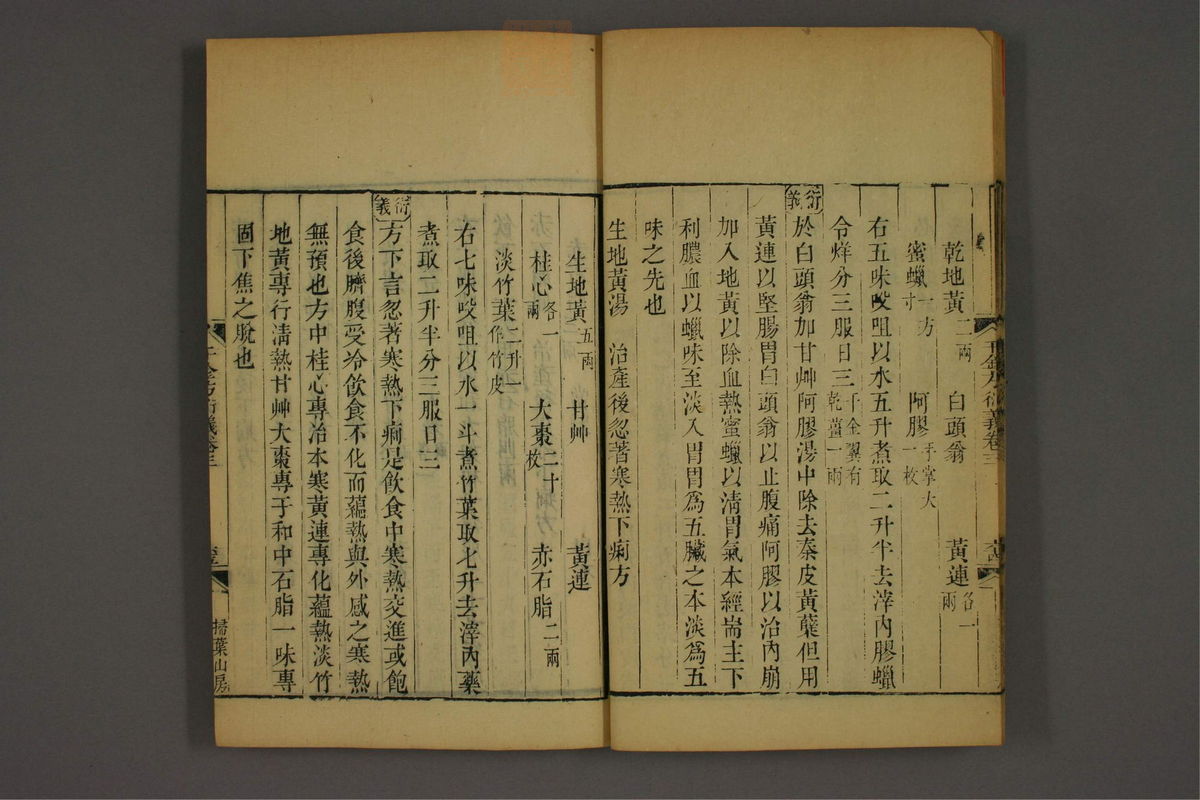 乾地黃二兩　白頭翁　黃連各一兩
蜜蠟一方寸　阿膠手掌大一枚
右五味㕮咀以水五升煮取二升半去滓內膠蠟
令烊分三服日三千金翼有乾薑一兩
衍義
於白頭翁加甘艸阿膠湯中除去秦皮黃蘗但用
黃連以堅腸胃白頭翁以止腹痛阿膠以治內崩
加入地黃以除血熱蜜蠟以清胃氣本經崙主下
利膿血以蠟味至淡入胃胃爲五臟之本淡爲五
味之先也
生地黃湯　治產後忽著寒熱下痢方
生地黃五兩　甘艸　黃連
桂心各一兩　大棗二十枚　赤石脂二兩
淡竹葉二升一作竹皮
右七味㕮咀以水一斗煮竹葉取七升去滓內藥
煮取二升半分三服日三
衍義
方下言忽著寒熱下痢是飲食中寒熱交進或飽
食後臍腹受冷飲食不化而蘊熱與外感之寒熱
無預也方中桂心專治本寒黃連專化蘊熱淡竹
地黃專行淸熱甘艸大棗專于和中石脂一味專
固下焦之脫也
千金方衍義卷三
掃葉山房